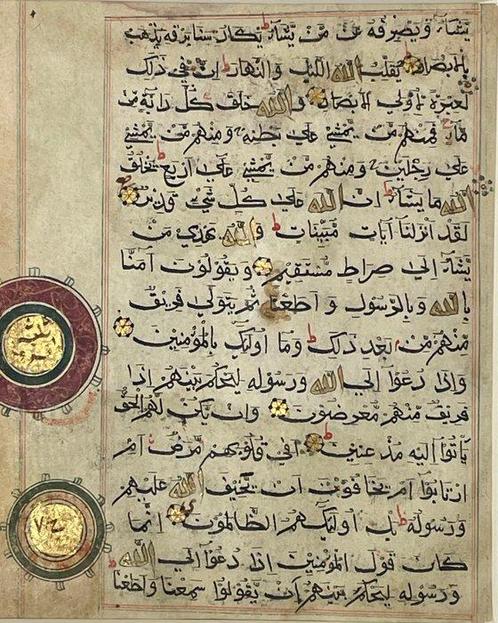 يَشَاءُ وَيَصْرِفُهُ عَنْ مَنْ يَشَاءُ يَكَادُ سَنَا بَرْقِهِ يَذْهَبُ
بِالْأَبْصَارِ يُقَلِّبُ اللَّهُ اللَّيْلَ وَالنَّهَارَ إِنَّ فِي ذَلِكَ
لَعِبْرَةً لِأُولِي الْأَبْصَارِ وَاللَّهُ خَلَقَ كُلَّ دَابَّةٍ مِنْ
مَاءٍ فَمِنْهُمْ مَنْ يَمْشِي عَلَى بَطْنِهِ وَمِنْهُمْ مَنْ يَمْشِي
عَلَى رِجْلَيْنِ وَمِنْهُمْ مَنْ يَمْشِي عَلَى أَرْبَعٍ يَخْلُقُ
اللَّهُ مَا يَشَاءُ إِنَّ اللَّهَ عَلَى كُلِّ شَيْءٍ قَدِيرٌ
لَقَدْ أَنْزَلْنَا آيَاتٍ مُبَيِّنَاتٍ وَاللَّهُ يَهْدِي مَنْ
يَشَاءُ إِلَى صِرَاطٍ مُسْتَقِيمٍ وَيَقُولُونَ آمَنَّا
بِاللَّهِ وَبِالرَّسُولِ وَأَطَعْنَا ثُمَّ يَتَوَلَّى فَرِيقٌ
مِنْهُمْ مِنْ بَعْدِ ذَلِكَ وَمَا أُولَئِكَ بِالْمُؤْمِنِينَ
وَإِذَا دُعُوا إِلَى اللَّهِ وَرَسُولِهِ لِيَحْكُمَ بَيْنَهُمْ إِذَا
فَرِيقٌ مِنْهُمْ مُعْرِضُونَ وَإِنْ يَكُنْ لَهُمُ الْحَقُّ
يَأْتُوا إِلَيْهِ مُذْعِنِينَ أَفِي قُلُوبِهِمْ مَرَضٌ أَمِ
ارْتَابُوا أَمْ يَخَافُونَ أَنْ يَحِيفَ اللَّهُ عَلَيْهِمْ
وَرَسُولُهُ بَلْ أُولَئِكَ هُمُ الظَّالِمُونَ إِنَّمَا
كَانَ قَوْلَ الْمُؤْمِنِينَ إِذَا دُعُوا إِلَى اللَّهِ
وَرَسُولِهِ لِيَحْكُمَ بَيْنَهُمْ أَنْ يَقُولُوا سَمِعْنَا وَأَطَعْنَا